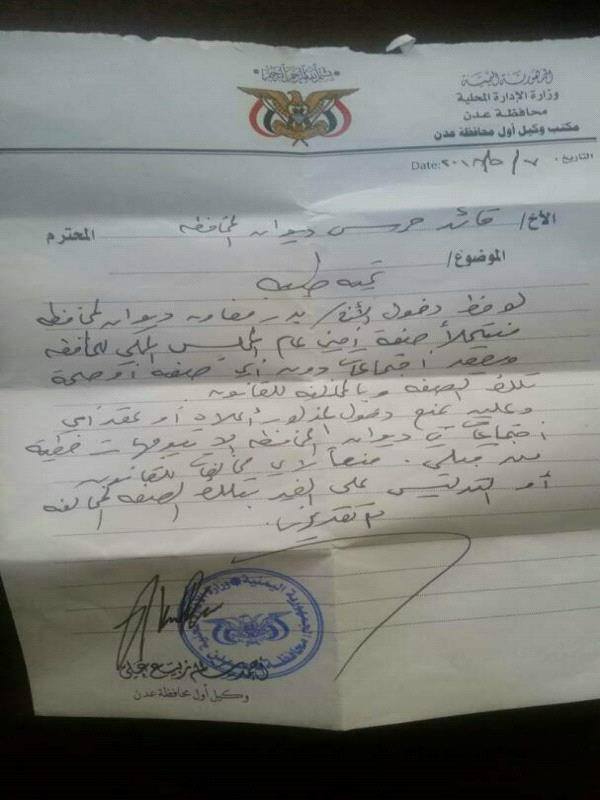 بسم الله الرحمن الرحيم
الجمهورية اليمنية
وزارة الإدارة المحلية
محافظة عدن
مكتب وكيل أول محافظة عدن
التاريخ: ٧ / ٥ / ٢٠١٨ Date:
الأخ/ قائد حرس ديوان المحافظة المحترم
الموضوع/
تحية طيبة
لوحظ دخول الأخ/ بدر معاون ديوان المحافظة
منتحلاً صفة أمين عام المجلس المحلي للمحافظة
ويعقد اجتماعات دون أي صفة أو صحة
لتلك الصفة وبالمخالفة للقانون
وعليه يمنع دخول المذكور أعلاه أو عقد أي
اجتماعات في ديوان المحافظة إلا بتوجيهات خطية
من قبلي. منعاً لأي مخالفات للقانون
أو التدليس على الغير بتلك الصفة المخالفة
الجمهورية اليمنية
أحمد سالم ربيع علي
وكيل أول محافظة عدن